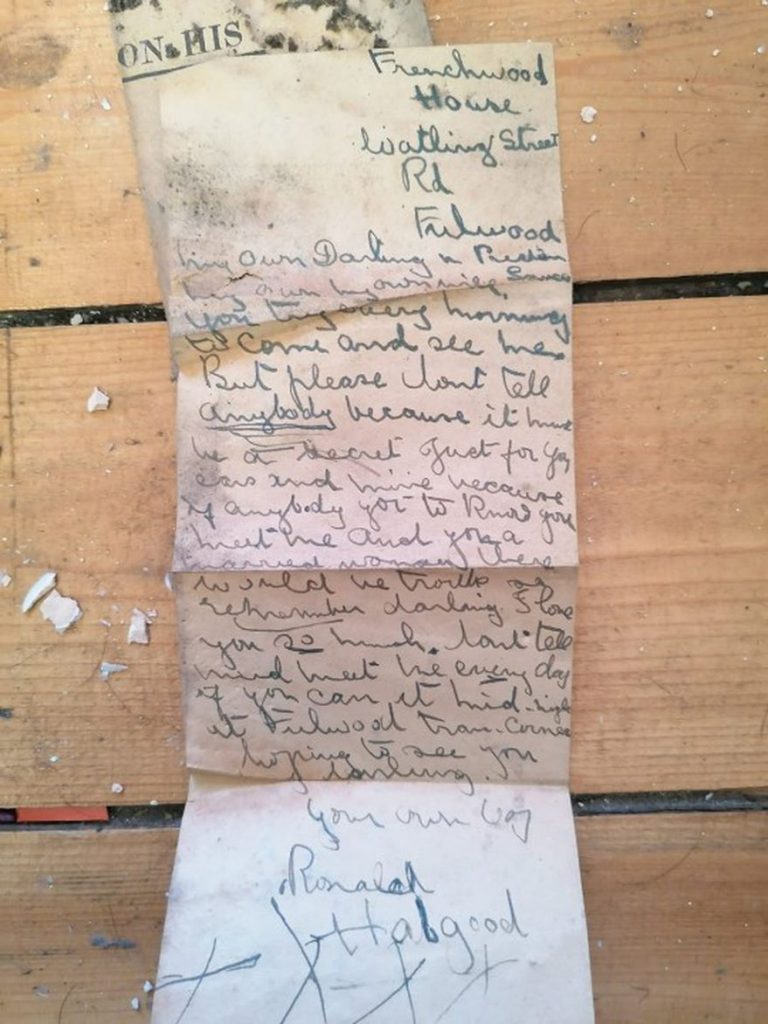 ON. HIS
Frenchwood
House.
Watling Street
Rd
Fulwood
My own Darling in Preston
my own my own
you try every morning
to come and see me.
But please dont tell
anybody because it must
be a secret Just for you
ears and mine because
if anybody got to know you
meet me and you a
married woman there
would be trouble so
remember darling I love
you so much. dont tell
mind meet me every day
if you can it mid-night
at Fulwood Tram-Corner
hoping to see you
darling.
your own boy
Ronald
Habgood
X X X X X